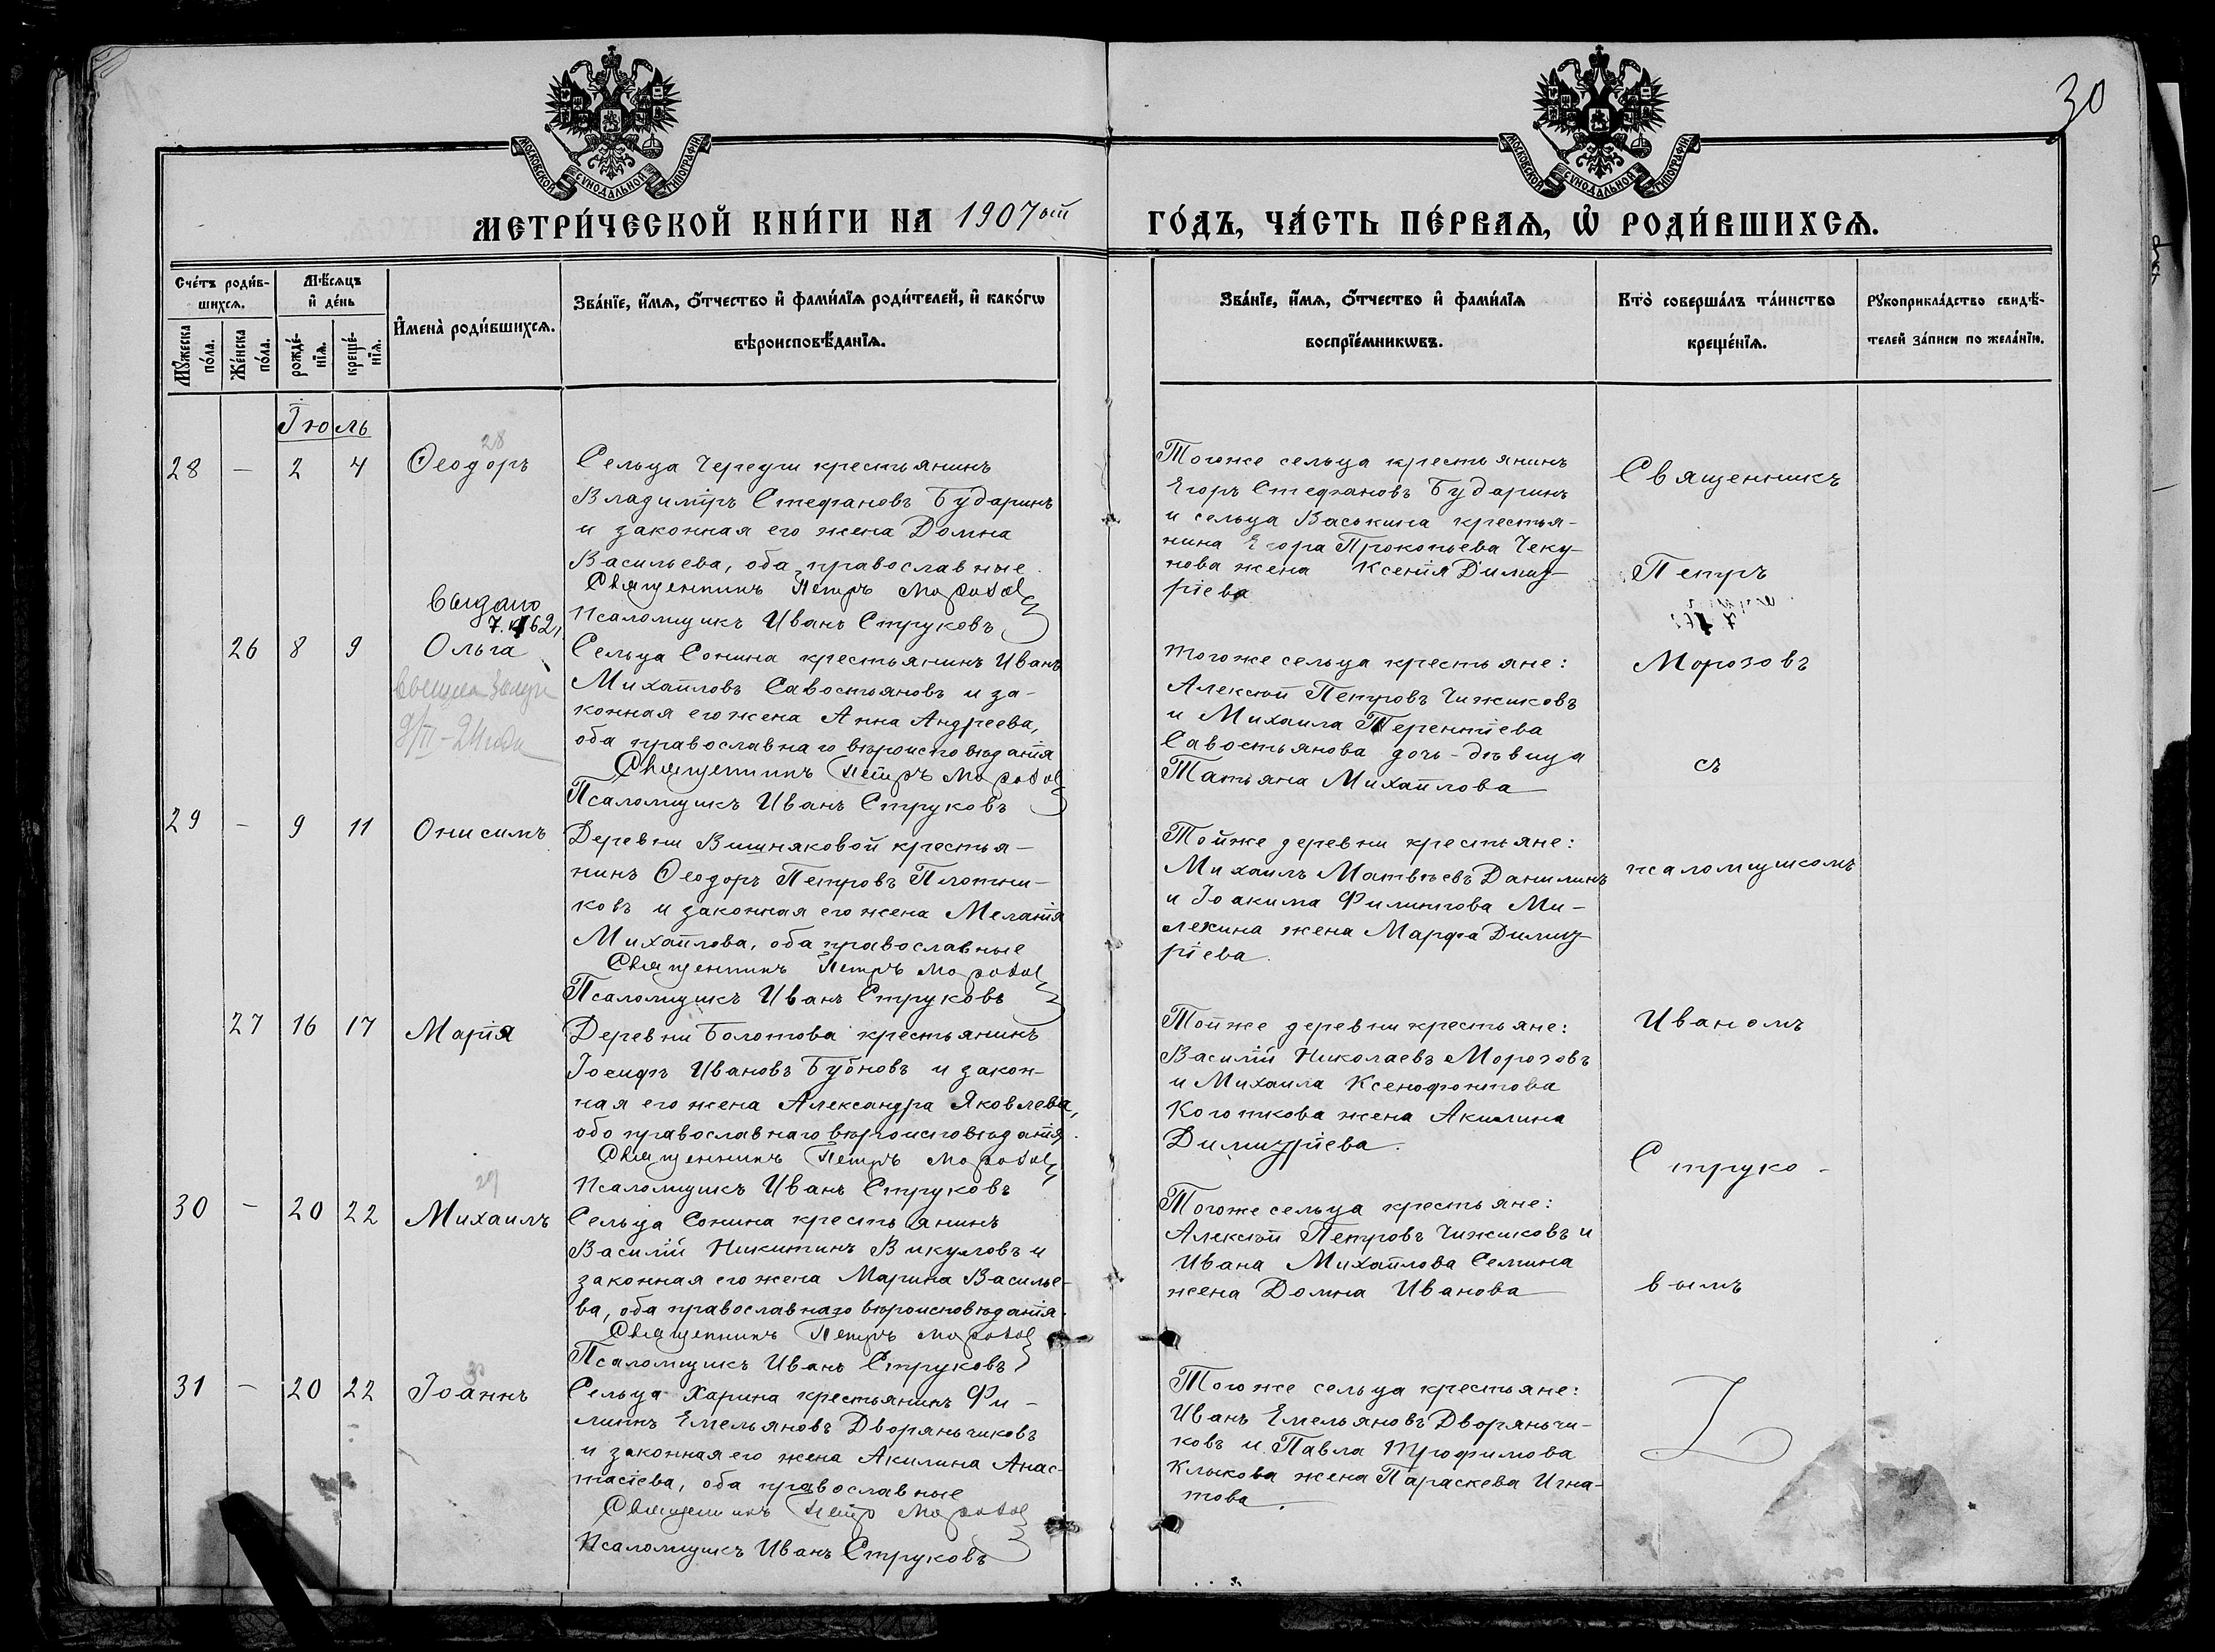 30
МОСКОВСКОЙ СУНОДАЛЬНОЙ ТИПОГРАФІИ
МОСКОВСКОЙ СУНОДАЛЬНОЙ ТИПОГРАФІИ
МЕТРИ́ЧЕСКОЙ КНИ́ГИ НА 1907 ой
ГО́ДЪ, ЧА́СТЬ ПЕ́РВАѦ, Ѡ РОДИ́ВШИХСѦ.
Сче́тъ роди́в-
шихсѧ.
Мѣ́сѧцъ
и де́нь
Мꙋ́жеска
по́ла.
Же́нска
по́ла.
рожде́-
нїѧ.
креще́-
нїѧ.
И҆мена̀ роди́вшихсѧ.
Зва́нїе, и҆́мѧ, ѻ҆́тчество и҆ фами́лїѧ роди́телей, и҆ како́гѡ
вѣроисповѣ́данїѧ.
Зва́нїе, и҆́мѧ, ѻ҆́тчество и҆ фами́лїѧ
воспрїе́мникѡвъ.
Кто̀ соверша́лъ та́инство
креще́нїѧ.
Рꙋкоприкла́дство свидѣ́-
телей за́писи по жела́нїю.
Іюль
28 — 2 4 Ѳеодоръ
28
Сельца Черпути крестьянинъ
Владиміръ Стефановъ Бударинъ
и законная его жена Домна
Васильева, оба православные.
Священникъ Петръ Морозов
Псаломщикъ Иванъ Струковъ
Тогоже сельца крестьянинъ
Егоръ Стефановъ Бударинъ
и сельца Васькина крестья-
нина Егора Прокопьева Чеку-
нова жена Ксенія Димит-
ріева
выдано
26 8 9 Ольга
Сельца Сонина крестьянинъ Иванъ
Михайловъ Савостьяновъ и за-
конная его жена Анна Андреева,
оба православнаго вѣроисповѣданія
Священникъ Петръ Морозов
Псаломщикъ Иванъ Струковъ
тогоже сельца крестьяне:
Алексѣй Петровъ Чижиковъ
и Михаила Терентіева
Савостьянова дочь-дѣвица
Татьяна Михайлова
29 — 9 11 Онисимъ
Деревни Вишняковой крестья-
нинъ Ѳеодоръ Петровъ Плотни-
ковъ и законная его жена Меланія
Михайлова, оба православные
Священникъ Петръ Морозов
Псаломщикъ Иванъ Струковъ
Тойже деревни крестьяне:
Михаилъ Матвѣевъ Данилинъ
и Іоакима Филиппова Ми-
лехина жена Марфа Димит-
ріева.
27 16 17 Марія
Деревни Болотова крестьянинъ
Іосифъ Ивановъ Бубновъ и закон-
ная его жена Александра Яковлева,
обо православнаго вѣроисповѣданія.
Священникъ Петръ Морозов
Псаломщикъ Иванъ Струковъ
Тойже деревни крестьяне:
Василій Николаевъ Морозовъ
и Михаила Ксенофонтова
Коготкова жена Акилина
Димитріева.
30 — 20 22 Михаилъ
29
Сельца Сонина крестьянинъ
Василій Никитинъ Викуловъ и
законная его жена Марина Василье-
ва, оба православнаго вѣроисповѣданія.
Священникъ Петръ Морозов
Псаломщикъ Иванъ Струковъ
Тогоже сельца крестьяне:
Алексѣй Петровъ Чижиковъ и
Ивана Михайлова Семина
жена Домна Иванова
31 — 20 22 Іоаннъ
Сельца Харина крестьянинъ Фи-
липпъ Емельяновъ Дворянчиковъ
и законная его жена Акилина Анас-
тасіева, оба православные
Священникъ Петр Морозов
Псаломщикъ Иванъ Струковъ
Тогоже сельца крестьяне:
Иванъ Емельяновъ Дворянчи-
ковъ и Павла Трофимова
Клыкова жена Параскева Игна-
това.
Священникъ
Петръ
Морозовъ
съ
псаломщикомъ
Иваномъ
Струко-
вымъ